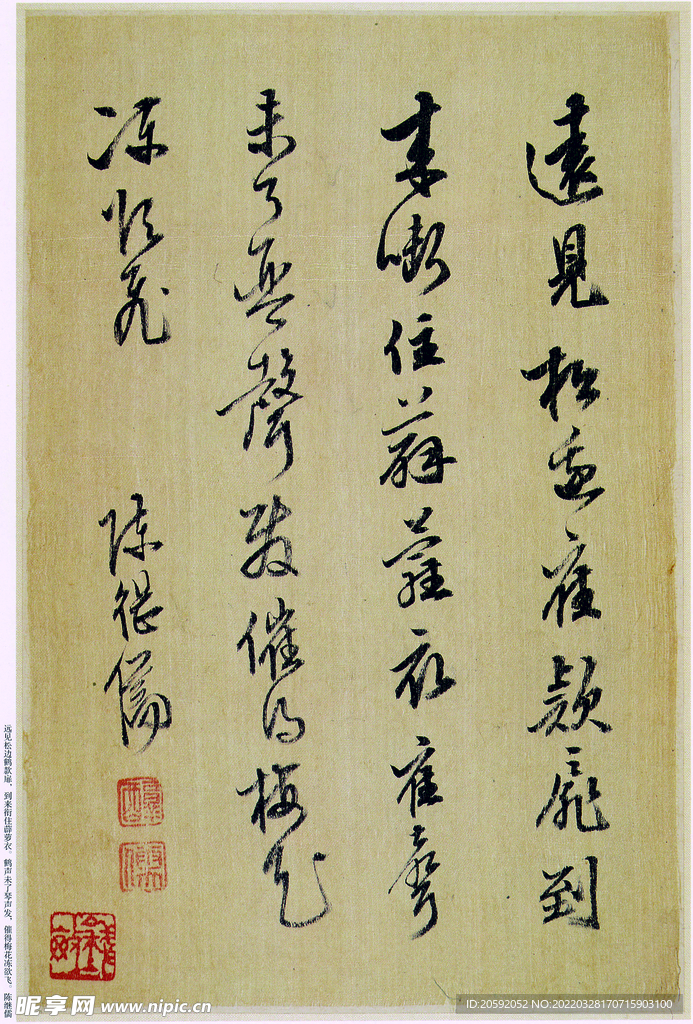 遠見松邊雀款扉到
來銜住薜蘿衣雀聲
未了琴聲發催得梅花
凍欲飛
陳継儒
远见松边鹤款扉，到来衔住薜萝衣。鹤声未了琴声发，催得梅花冻欲飞。陈继儒
昵享网 www.nipic.cn
ID:20592052 NO:20220328170715903100